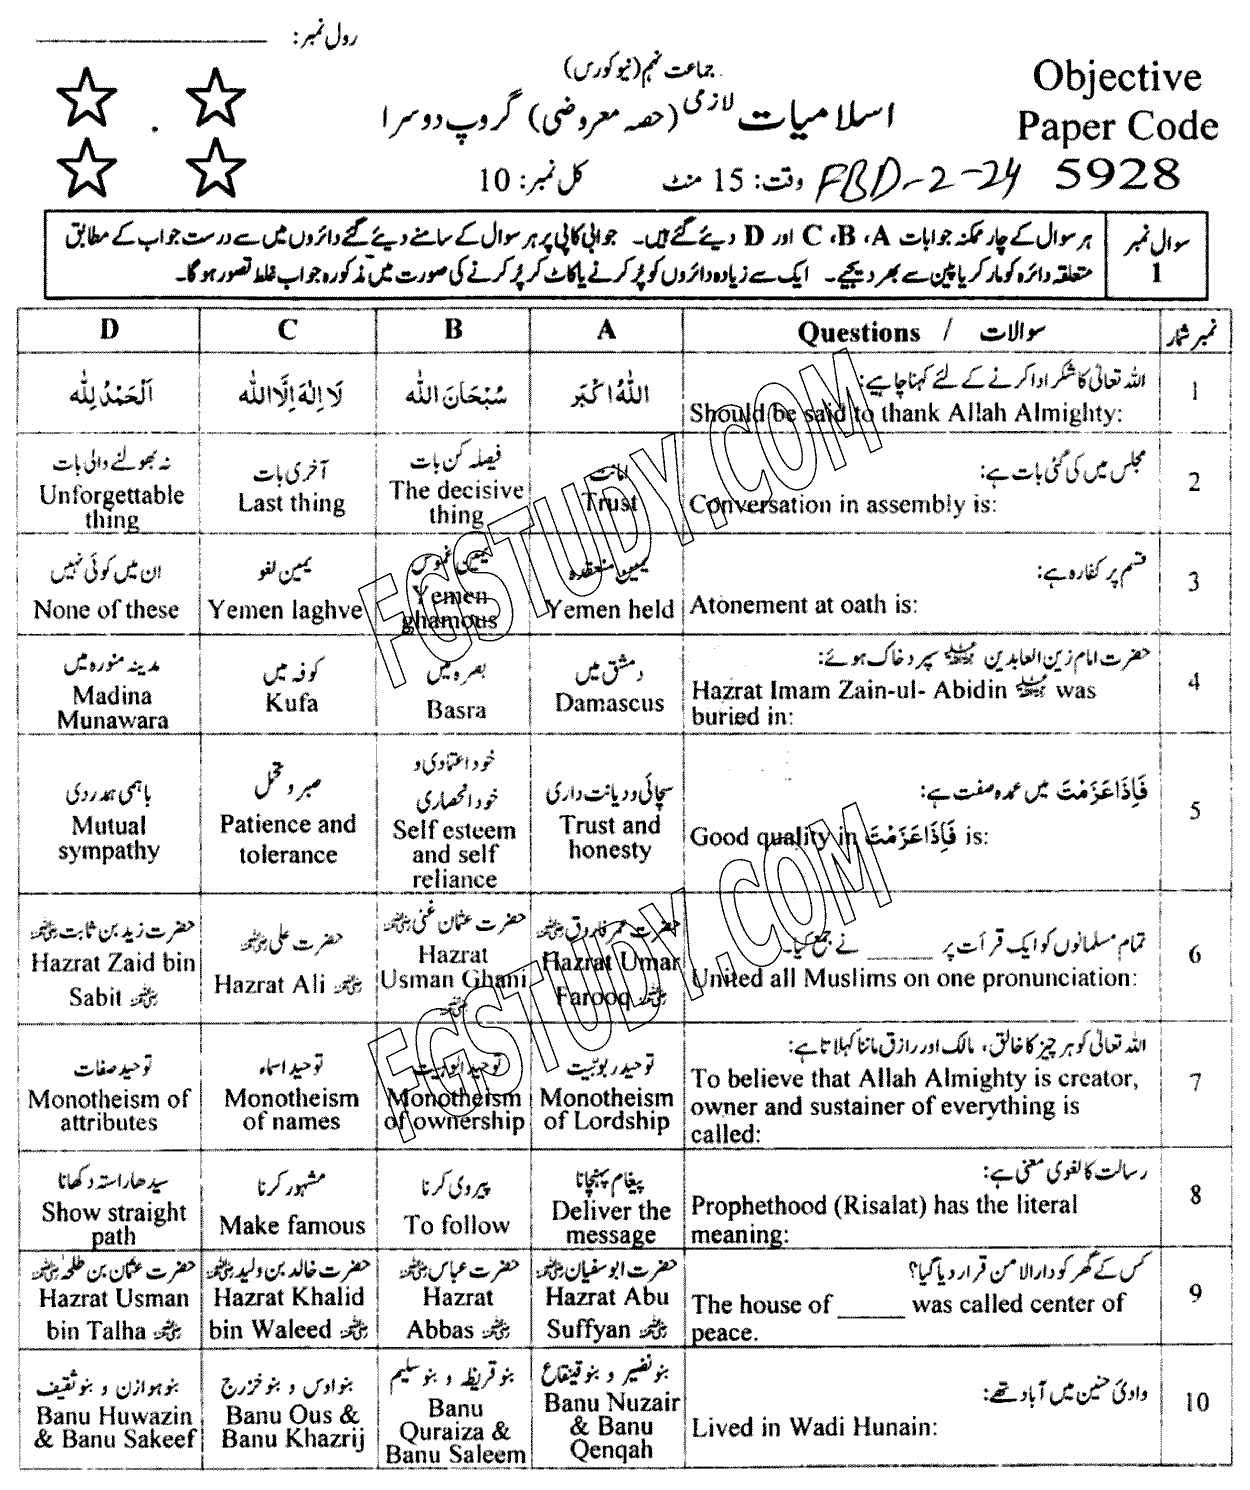 رول نمبر: ____________
جماعت نہم (نیو کورس)
اسلامیات لازمی (حصہ معروضی) گروپ دوسرا
Objective
Paper Code
5928
وقت: 15 منٹ
کل نمبر: 10
FBD-2-24
سوال نمبر 1
ہر سوال کے چار ممکنہ جوابات A، B، C اور D دیئے گئے ہیں۔ جوابی کاپی پر ہر سوال کے سامنے دیئے گئے دائروں میں سے درست جواب کے مطابق
متعلقہ دائرہ کو مارکر یا پین سے بھر دیجیے۔ ایک سے زیادہ دائروں کو پُر کرنے یا کاٹ کر پُر کرنے کی صورت میں مذکورہ جواب غلط تصور ہو گا۔
نمبر شمار
سوالات / Questions
A
B
C
D
1
اللہ تعالیٰ کا شکر ادا کرنے کے لئے کہنا چاہیے:
Should be said to thank Allah Almighty:
اَللّٰہُ اَکْبَر
سُبْحَانَ اللّٰہ
لَا اِلٰہَ اِلَّا اللّٰہ
اَلْحَمْدُ لِلّٰہ
2
مجلس میں کی گئی بات ہے:
Conversation in assembly is:
امانت
Trust
فیصلہ کن بات
The decisive
thing
آخری بات
Last thing
نہ بھولنے والی بات
Unforgettable
thing
3
قسم پر کفارہ ہے:
Atonement at oath is:
یمین منعقدہ
Yemen held
یمین غموس
Yemen
ghamous
یمین لغو
Yemen laghve
ان میں کوئی نہیں
None of these
4
حضرت امام زین العابدین سپرد خاک ہوئے:
Hazrat Imam Zain-ul- Abidin was
buried in:
دمشق میں
Damascus
بصرہ میں
Basra
کوفہ میں
Kufa
مدینہ منورہ میں
Madina
Munawara
5
فَاِذَا عَزَمْتَ میں عمدہ صفت ہے:
Good quality in فَاِذَا عَزَمْتَ is:
سچائی و دیانت داری
Trust and
honesty
خود اعتمادی و
خود انحصاری
Self esteem
and self
reliance
صبر و تحمل
Patience and
tolerance
باہمی ہمدردی
Mutual
sympathy
6
تمام مسلمانوں کو ایک قرأت پر ______ نے جمع کیا۔
United all Muslims on one pronunciation:
حضرت عمر فاروق رضی اللہ عنہ
Hazrat Umar
Farooq رضی اللہ عنہ
حضرت عثمان غنی رضی اللہ عنہ
Hazrat
Usman Ghani
رضی اللہ عنہ
حضرت علی رضی اللہ عنہ
Hazrat Ali رضی اللہ عنہ
حضرت زید بن ثابت رضی اللہ عنہ
Hazrat Zaid bin
Sabit رضی اللہ عنہ
7
اللہ تعالیٰ کو ہر چیز کا خالق، مالک اور رازق ماننا کہلاتا ہے:
To believe that Allah Almighty is creator,
owner and sustainer of everything is
called:
توحید ربوبیّت
Monotheism
of Lordship
توحید
Monotheism
of ownership
توحید اسماء
Monotheism
of names
توحید صفات
Monotheism of
attributes
8
رسالت کا لغوی معنی ہے:
Prophethood (Risalat) has the literal
meaning:
پیغام پہنچانا
Deliver the
message
پیروی کرنا
To follow
مشہور کرنا
Make famous
سیدھا راستہ دکھانا
Show straight
path
9
کس کے گھر کو دارالامن قرار دیا گیا؟
The house of ______ was called center of
peace.
حضرت ابوسفیان رضی اللہ عنہ
Hazrat Abu
Suffyan رضی اللہ عنہ
حضرت عباس رضی اللہ عنہ
Hazrat
Abbas رضی اللہ عنہ
حضرت خالد بن ولید رضی اللہ عنہ
Hazrat Khalid
bin Waleed رضی اللہ عنہ
حضرت عثمان بن طلحہ رضی اللہ عنہ
Hazrat Usman
bin Talha رضی اللہ عنہ
10
وادیٔ حنین میں آباد تھے:
Lived in Wadi Hunain:
بنو نضیر و بنو قینقاع
Banu Nuzair
& Banu
Qenqah
بنو قریظہ و بنو سلیم
Banu
Quraiza &
Banu Saleem
بنو اوس و بنو خزرج
Banu Ous &
Banu Khazrij
بنو ہوازن و بنو ثقیف
Banu Huwazin
& Banu Sakeef
FGSTUDY.COM
FGSTUDY.COM